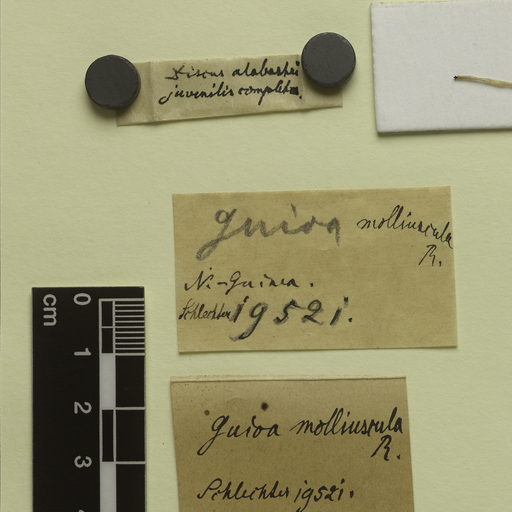 Discus alabastri
juvenilis complet
Guioa molliuscula
R.
N.-Guinea.
Schlechter 19521.
cm
0
1
2
3
Guioa molliuscula
R.
Schlechter 19521.